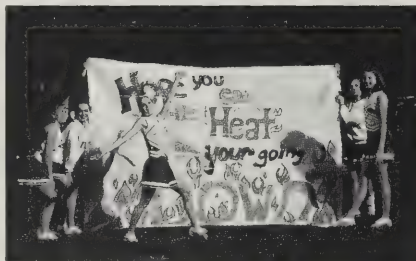 Hope you
can
"Heat"
your going
DOWN